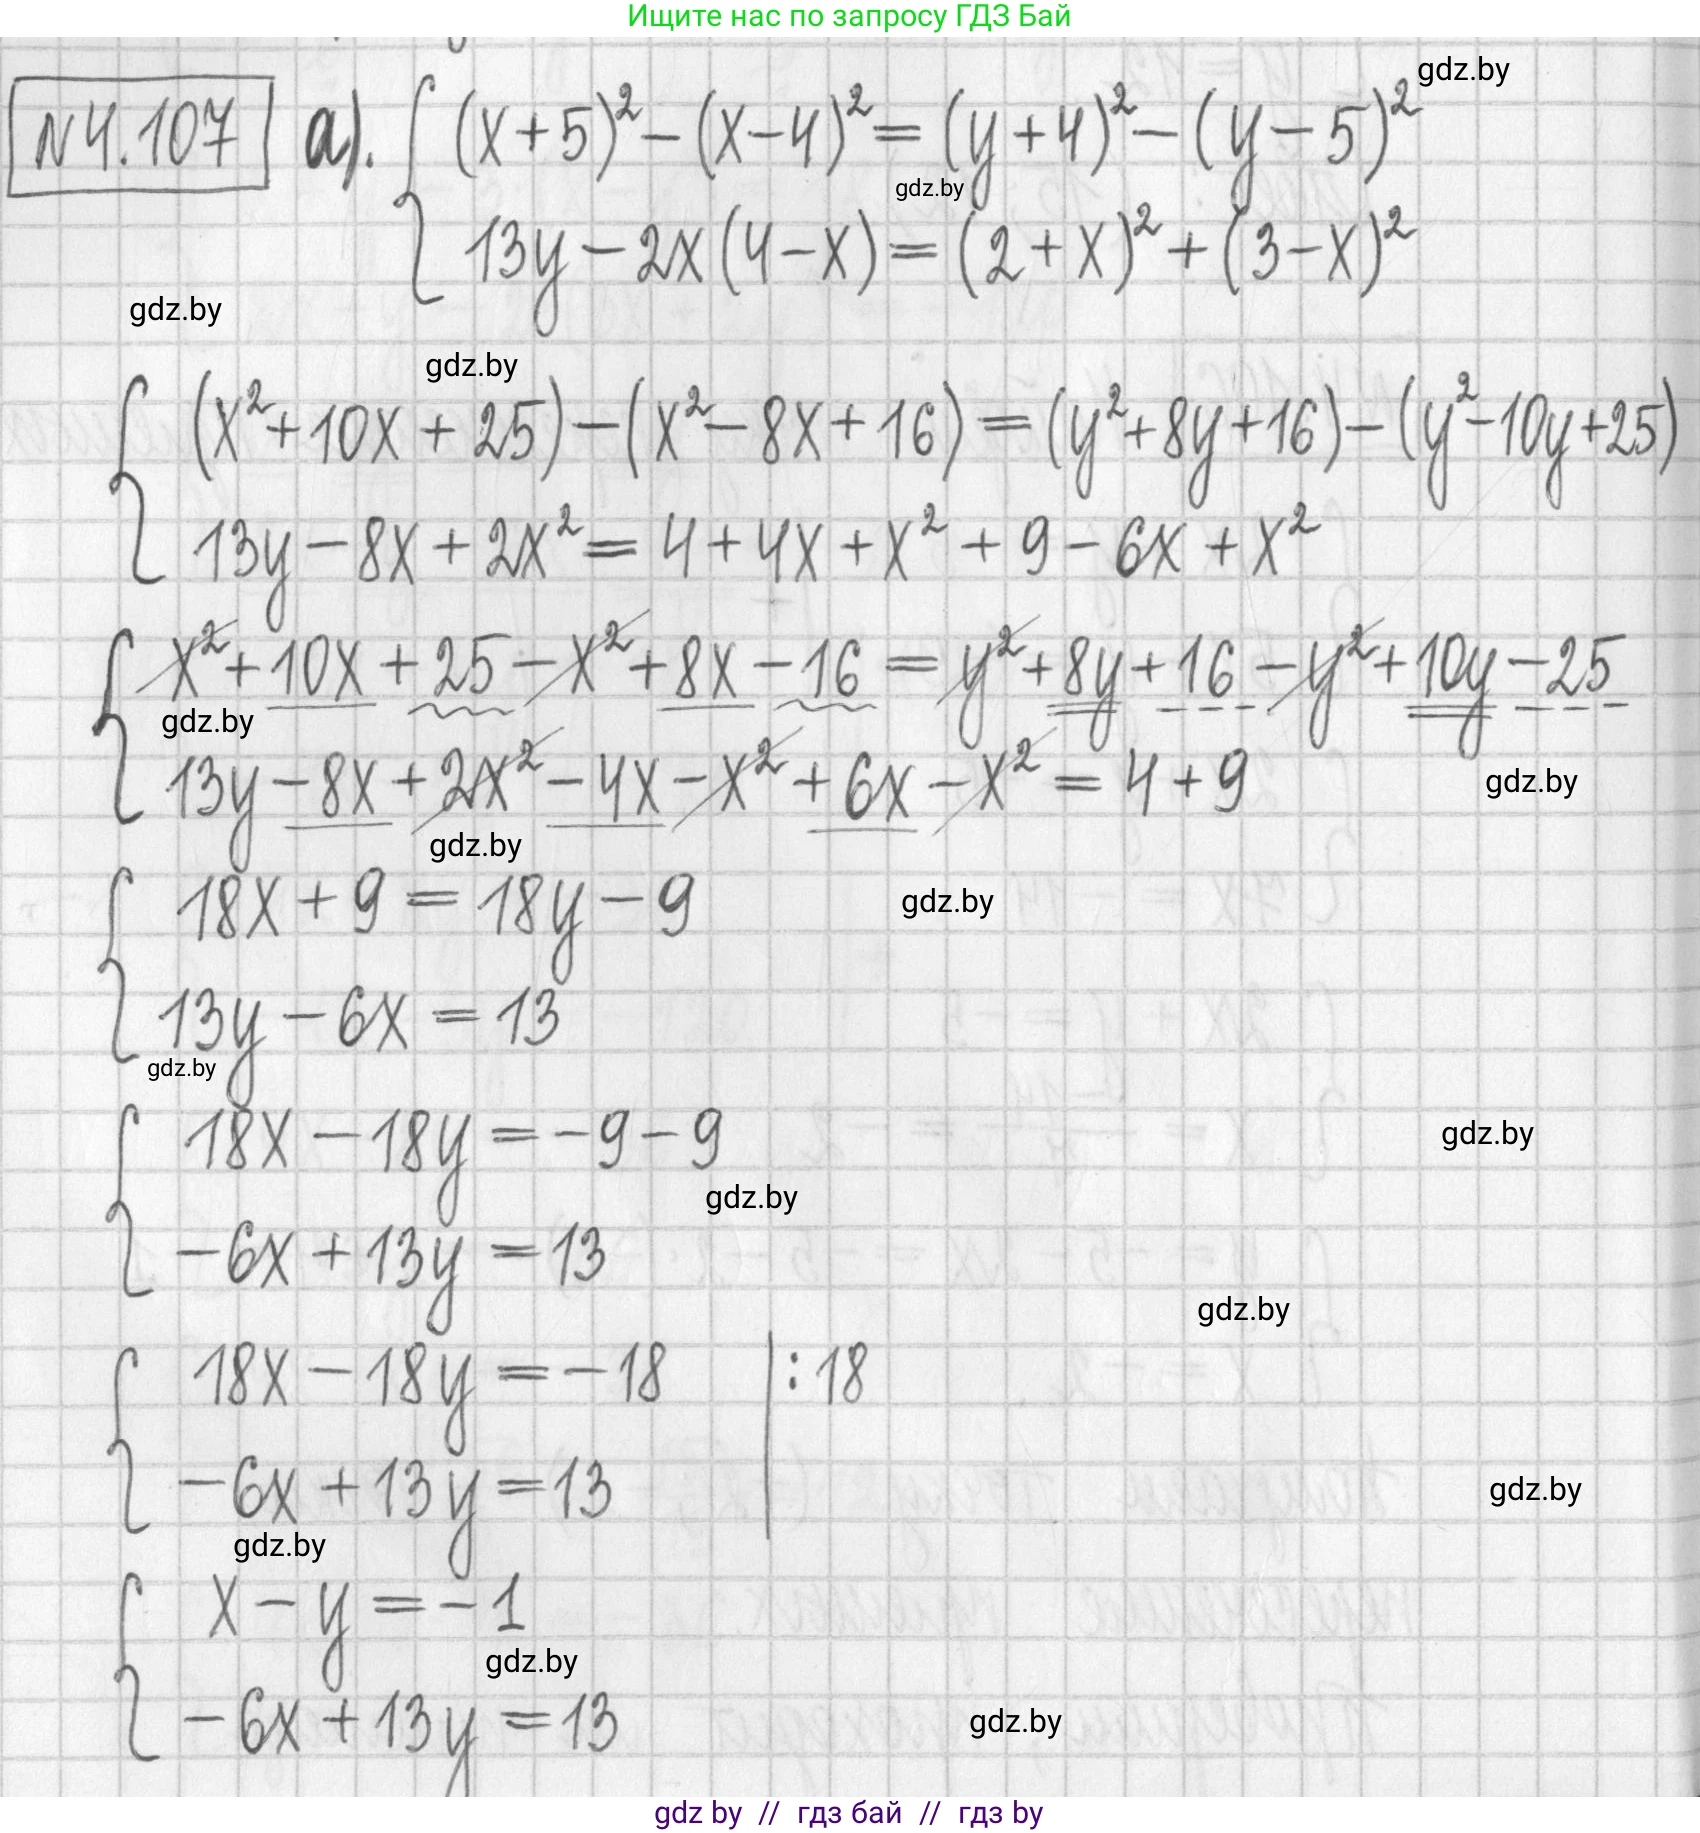 Ищите нас по запросу ГДЗ Бай
gdz.by
№4.107 а). { (x+5)² − (x−4)² = (y+4)² − (y−5)²
gdz.by
13y − 2x(4−x) = (2+x)² + (3−x)²
gdz.by
gdz.by
{ (x²+10x+25) − (x²−8x+16) = (y²+8y+16) − (y²−10y+25)
13y − 8x + 2x² = 4 + 4x + x² + 9 − 6x + x²
{ x² + 10x + 25 − x² + 8x − 16 = y² + 8y + 16 − y² + 10y − 25
gdz.by
13y − 8x + 2x² − 4x − x² + 6x − x² = 4 + 9
gdz.by
gdz.by
{ 18x + 9 = 18y − 9
gdz.by
13y − 6x = 13
gdz.by
{ 18x − 18y = −9 − 9
gdz.by
gdz.by
−6x + 13y = 13
gdz.by
{ 18x − 18y = −18 | :18
−6x + 13y = 13
gdz.by
gdz.by
{ x − y = −1
gdz.by
−6x + 13y = 13
gdz.by
gdz by // гдз бай // гдз by